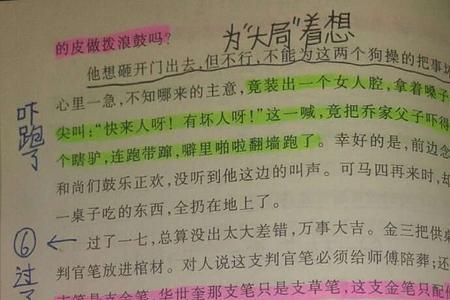 的皮做拨浪鼓吗?
为"大局"着想
他想砸开门出去,但不行,不能为这两个狗操的把事坏
心里一急,不知哪来的主意,竟装出一个女人腔,拿着嗓子
尖叫:“快来人呀!有坏人呀!”这一喊,竟把乔家父子吓得
吓跑了
个瞎驴,连跑带蹿,噼里啪啦翻墙跑了。幸好的是,前边念
和尚们鼓乐正欢,没听到他这边的叫声。可马四再来时,却
一桌子吃的东西,全扔在地上了。
⑥ ←
过了一七,总算没出太大差错,万事大吉。金三把供桌
过了
判官笔放进棺材。对人说这支判官笔必须给师傅陪葬;还
支笔是支金笔,华世奎那支笔只是支草笔,这支金笔只配他